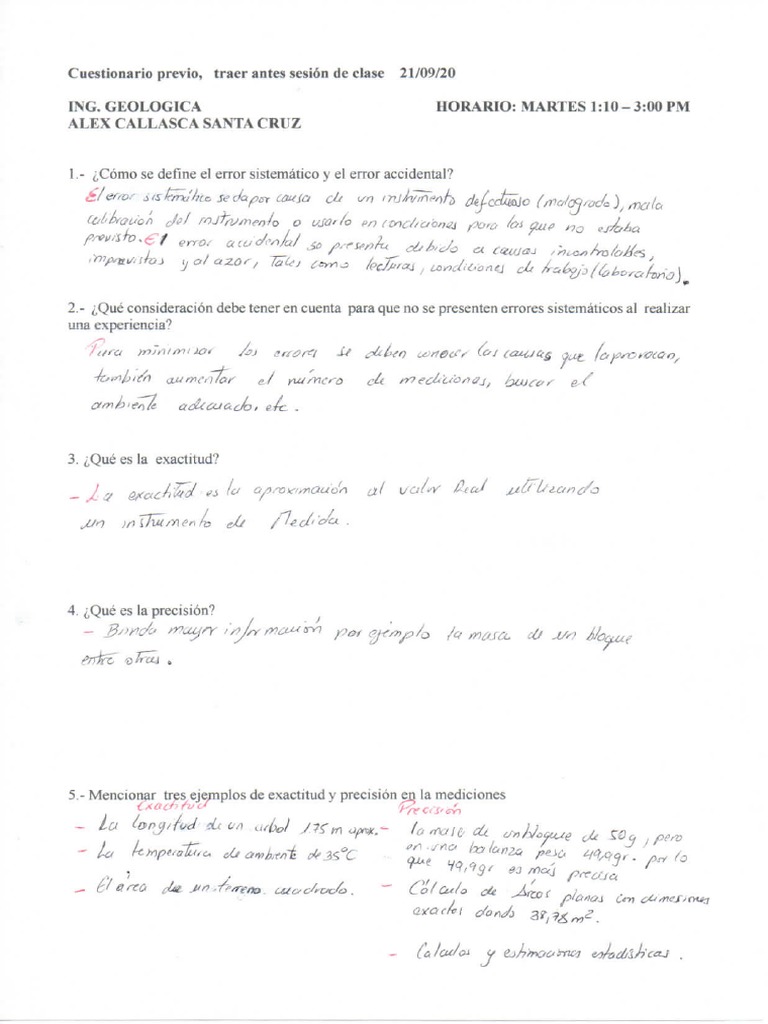 Cuestionario previo, traer antes sesión de clase 21/09/20
ING. GEOLOGICA HORARIO: MARTES 1:10 – 3:00 PM
ALEX CALLASCA SANTA CRUZ
1.- ¿Cómo se define el error sistemático y el error accidental?
El error sistemático se da por causa de un instrumento defectuoso (malogrado), mala
calibración del instrumento o usarlo en condiciones para las que no estaba
previsto. El error accidental se presenta debido a causas incontrolables,
imprevistas y al azar, Tales como lecturas, condiciones de trabajo (laboratorio).
2.- ¿Qué consideración debe tener en cuenta para que no se presenten errores sistemáticos al realizar
una experiencia?
Para minimisar los errores se deben conocer las causas que la provocan,
también aumentar el número de mediciones, buscar el
ambiente adecuado, etc.
3. ¿Qué es la exactitud?
- La exactitud es la aproximación al valor Real utilizando
un instrumento de Medida.
4. ¿Qué es la precisión?
- Brinda mayor información por ejemplo la masa de un bloque
entre otras.
5.- Mencionar tres ejemplos de exactitud y precisión en la mediciones
Exactitud
- La longitud de un arbol 1.75 m aprox.
- La temperatura de ambiente de 35°C
- El área de un terreno cuadrado.
Precisión
- la masa de un bloque de 50g, pero
en una balanza pesa 49,9gr. por lo
que 49,9gr es más precisa
- Cálculo de áreas planas con dimesiones
exactas dando 38,78 m².
- Calculos y estimaciones estadísticas.